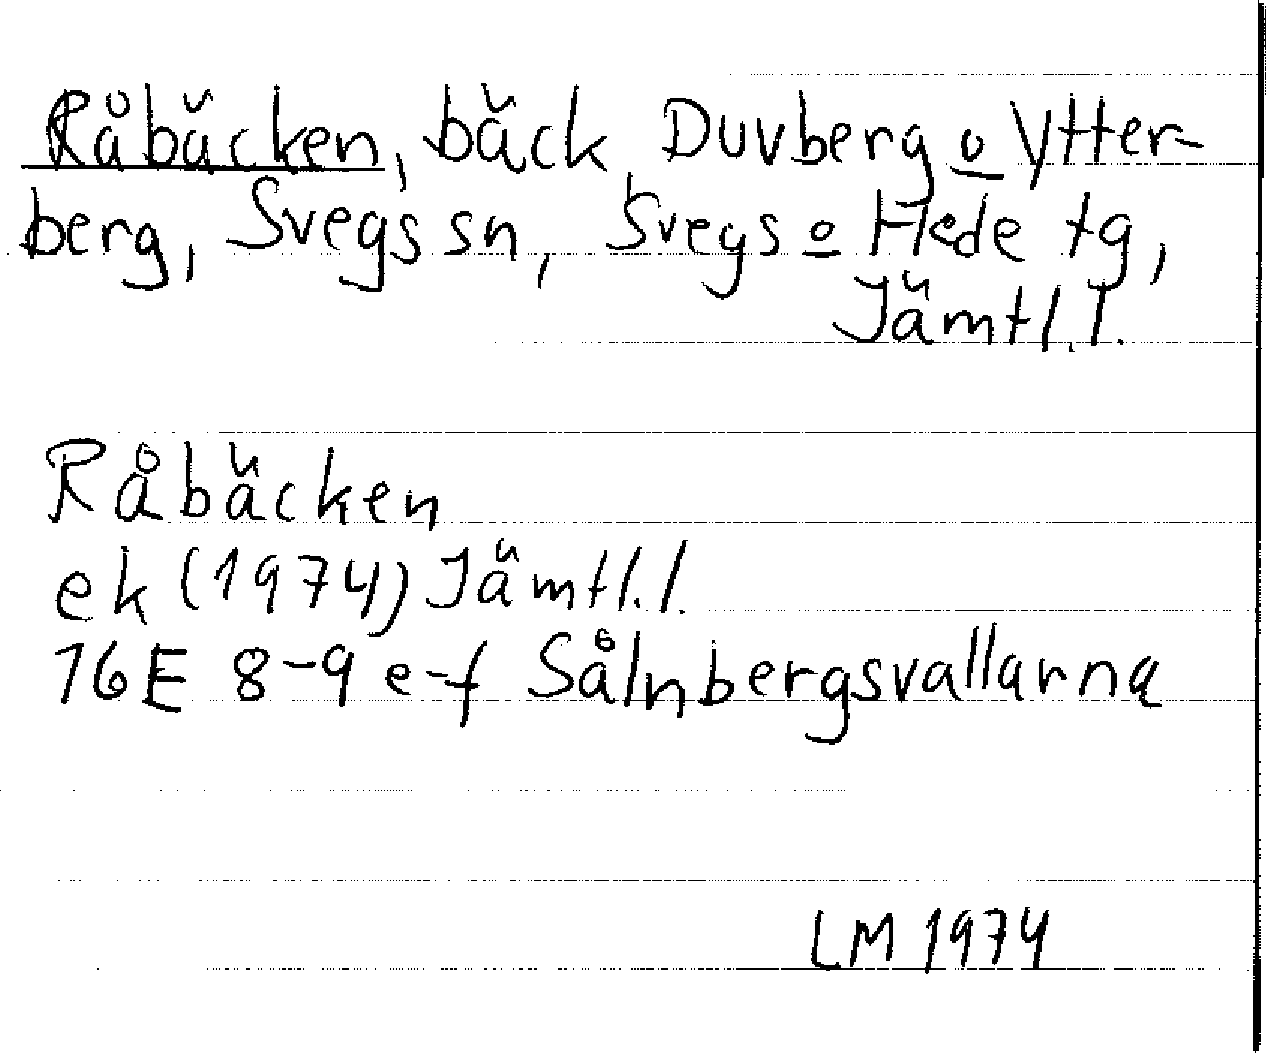 Råbäcken, bäck, Duvberg o Ytter-
berg, Svegs sn, Svegs o Hede tg,
Jämtl.l.
Råbäcken
ek (1974) Jämtl.l.
16E 8-9 e-f Sålnbergsvallarna
LM 1974